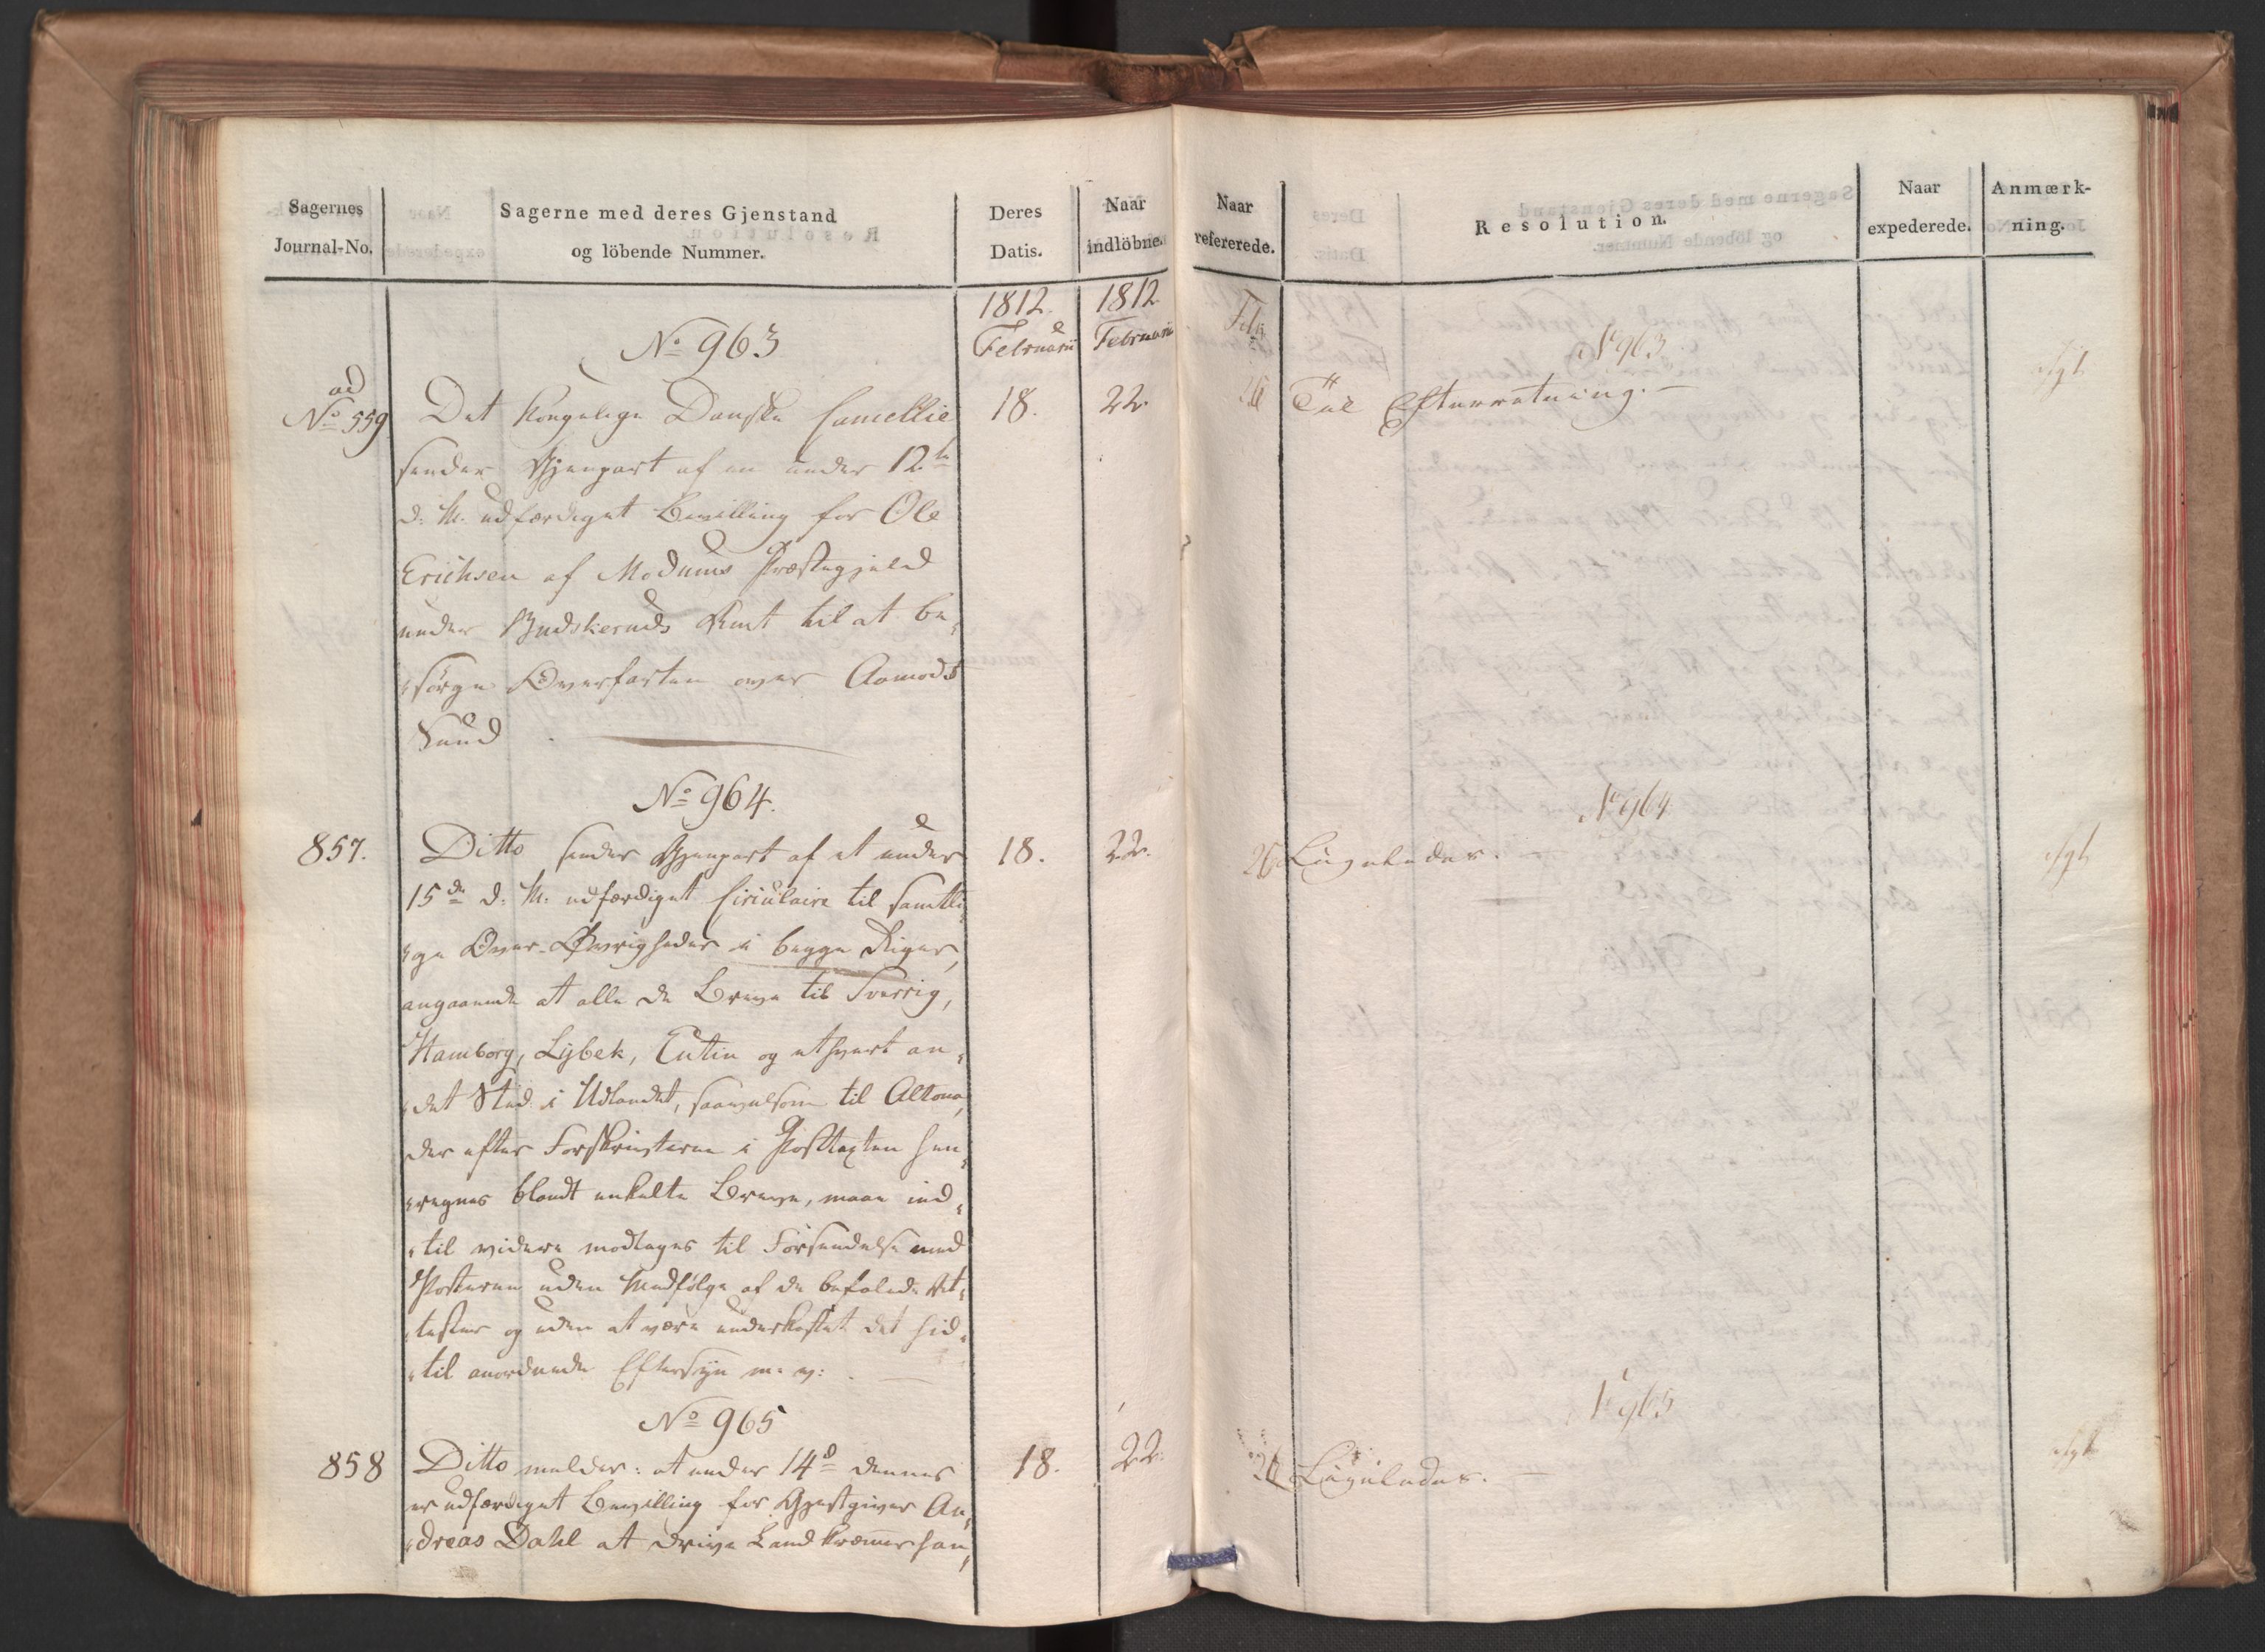 Sagernes
Journal-No.
Sagerne med deres Gjenstand
og löbende Nummer.
Deres
Datis.
Naar
indlöbne.
1812. 1812
Februarii Februarii
No 963
ad
No 559
Det kongelige Danske Cancellie 18. 22.
sender Gjenpart af en under 12te
d: M. udfærdiget Bevilling for Ole
Erichsen af Modums Præstegjeld
under Budskeruds Amt til at be¬
¬sørge Overfarten over Aamodt
Sund.
No 964.
857. Ditto sender Gjenpart af et under 18. 22.
15de d: M. udfærdiget Circulaire til samtli¬
¬ge Over-Øvrigheder i begge Riger,
angaaende at alle de Breve til Sverrig,
Hamborg, Lybek, Eutin og ethvert an¬
¬det Sted i Udlandet, saavelsom til Altona,
der efter Forskrivterne i Posttaxten hen¬
¬regnes blandt enkelte Breve, maae ind¬
¬til videre modtages til Forsendelse med
Posterne uden Medfølge af de befalede At¬
¬tester og uden at være underkastet det hid¬
¬til anordnede Eftersyn m. v:
No 965
858 Ditto melder: at under 14d dennes 18. 22.
er udfærdiget Bevilling for Gjestgiver An¬
¬dreas Dahl at drive Landkræmmerhan¬
Naar
refererede.
Resolution.
Naar
expederede.
Anmærk-
ning.
Febr.
No 963
26 Til Efterretning. —
No 964
26 Ligeledes. —
No 965
26 Ligeledes. —